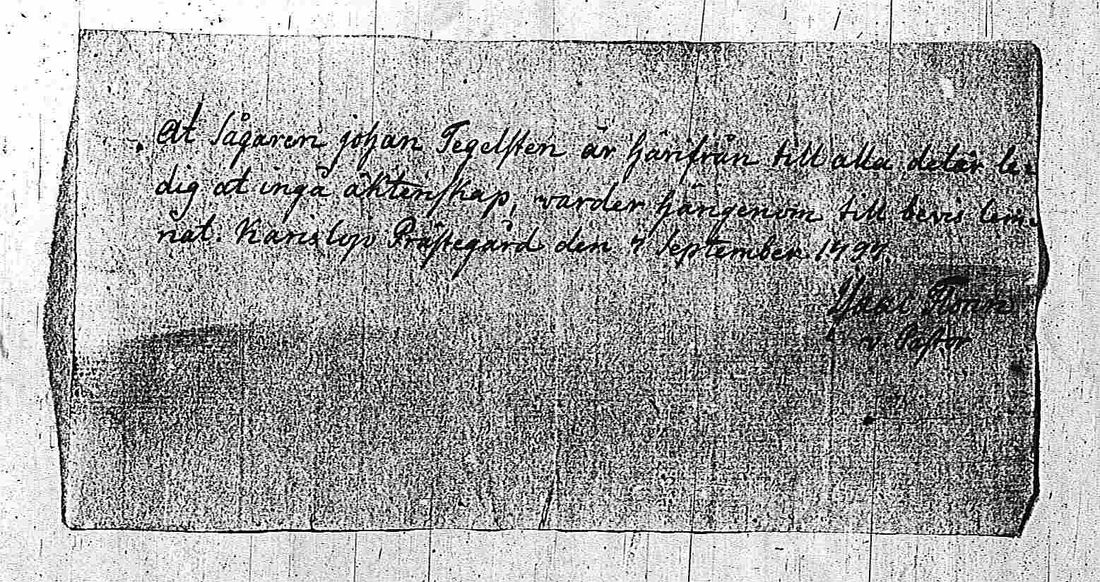 At Sågaren johan Tegelsten är härifrån till alla delar le-
dig at ingå äktenskap, warder härigenom till bevis lem-
nat. Karislojo Prästegård den 7 September 1797.
v. Pastor